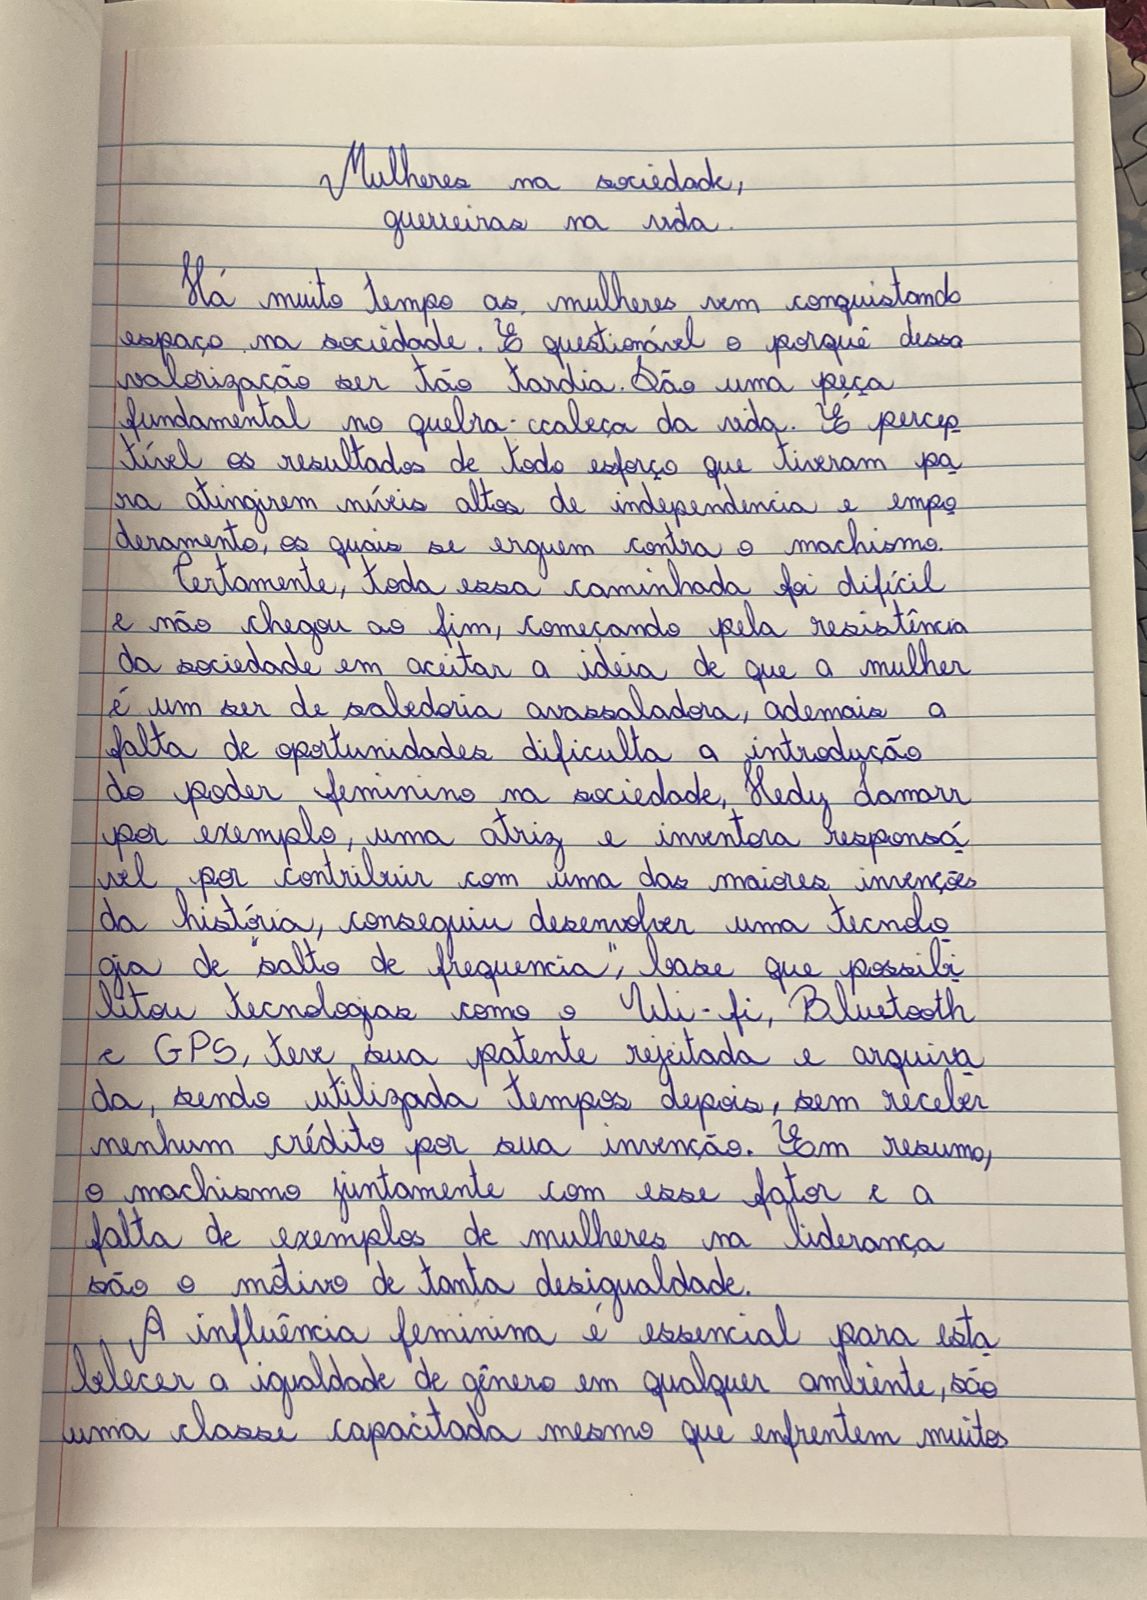 Mulheres na sociedade,
guerreiras na vida.
Há muito tempo as mulheres vem conquistando
espaço na sociedade. E questionável o porquê dessa
valorização ser tão tardia. São uma peça
fundamental no quebra-ccabeça da vida. É percep
tível os resultados de todo esforço que tiveram pa
ra atingirem níveis altos de independencia e empo
deramento, os quais se erguem contra o machismo.
Certamente, toda essa caminhada foi difícil
e não chegou ao fim, começando pela resistência
da sociedade em aceitar a ideia de que a mulher
é um ser de sabedoria avassaladora, ademais a
falta de oportunidades dificulta a introdução
do poder feminino na sociedade, Hedy Lamarr
por exemplo, uma atriz e inventora responsá
vel por contribuir com uma das maiores invenções
da história, conseguiu desenvolver uma tecnolo
gia de "salto de frequencia", base que possibi
litou tecnologias como o Wi-fi, Bluetooth
e GPS, teve sua patente rejeitada e arquiva
da, sendo utilizada tempos depois, sem receber
nenhum crédito por sua invenção. Em resumo,
o machismo juntamente com esse fator e a
falta de exemplos de mulheres na liderança
são o motivo de tanta desigualdade.
A influência feminina é essencial para esta
belecer a igualdade de gênero em qualquer ambiente, são
uma classe capacitada mesmo que enfrentem muitos